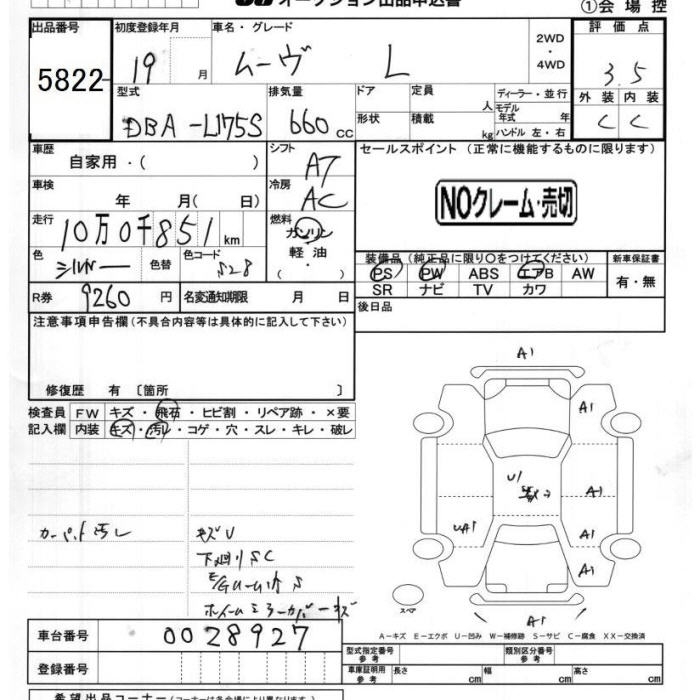 オークション出品申込書
①会場控
出品番号 初度登録年月 車名・グレード 2WD・4WD 評価点
5822 19 月 ムーヴ L 3.5
型式 排気量 ドア 定員 人 ディーラー・並行 外装 内装
DBA-L175S 660cc 形状 積載 kg モデル年式 年 ハンドル 左・右 C C
車歴 自家用・( ) シフト AT セールスポイント (正常に機能するものに限ります)
車検 年 月(日) 冷房 AC
NOクレーム・売切
走行 10万0千851km 燃料 ガソリン 軽油 ( ・ )
色 シルバー 色替 色コード S28
装備品(純正品に限り○をつけてください) 新車保証書
PS PW ABS エアB AW 有・無
SR ナビ TV カワ
R券 9260円 名変通知期限 月 日 後日品
注意事項申告欄(不具合内容等は具体的に記入して下さい)
修復歴 有 〔箇所 〕
検査員 FW キズ・飛石・ヒビ割・リペア跡・×要
記入欄 内装 キズ・汚れ・コゲ・穴・スレ・キレ・破レ
A1
A1
U1
A1
UA1
A1
A1
A1
カーペット汚レ キズU
下廻りSC
ホイールミラーカバーキズ
スペア
A-キズ E-エクボ U-凹み W-補修跡 S-サビ C-腐食 XX-交換済
車台番号 0028927
型式指定番号 参考 類別区分番号 参考
登録番号 車庫証明用 参考 長さ cm 幅 cm 高さ cm
希望出品コーナー(コーナーは各会場により異なります)